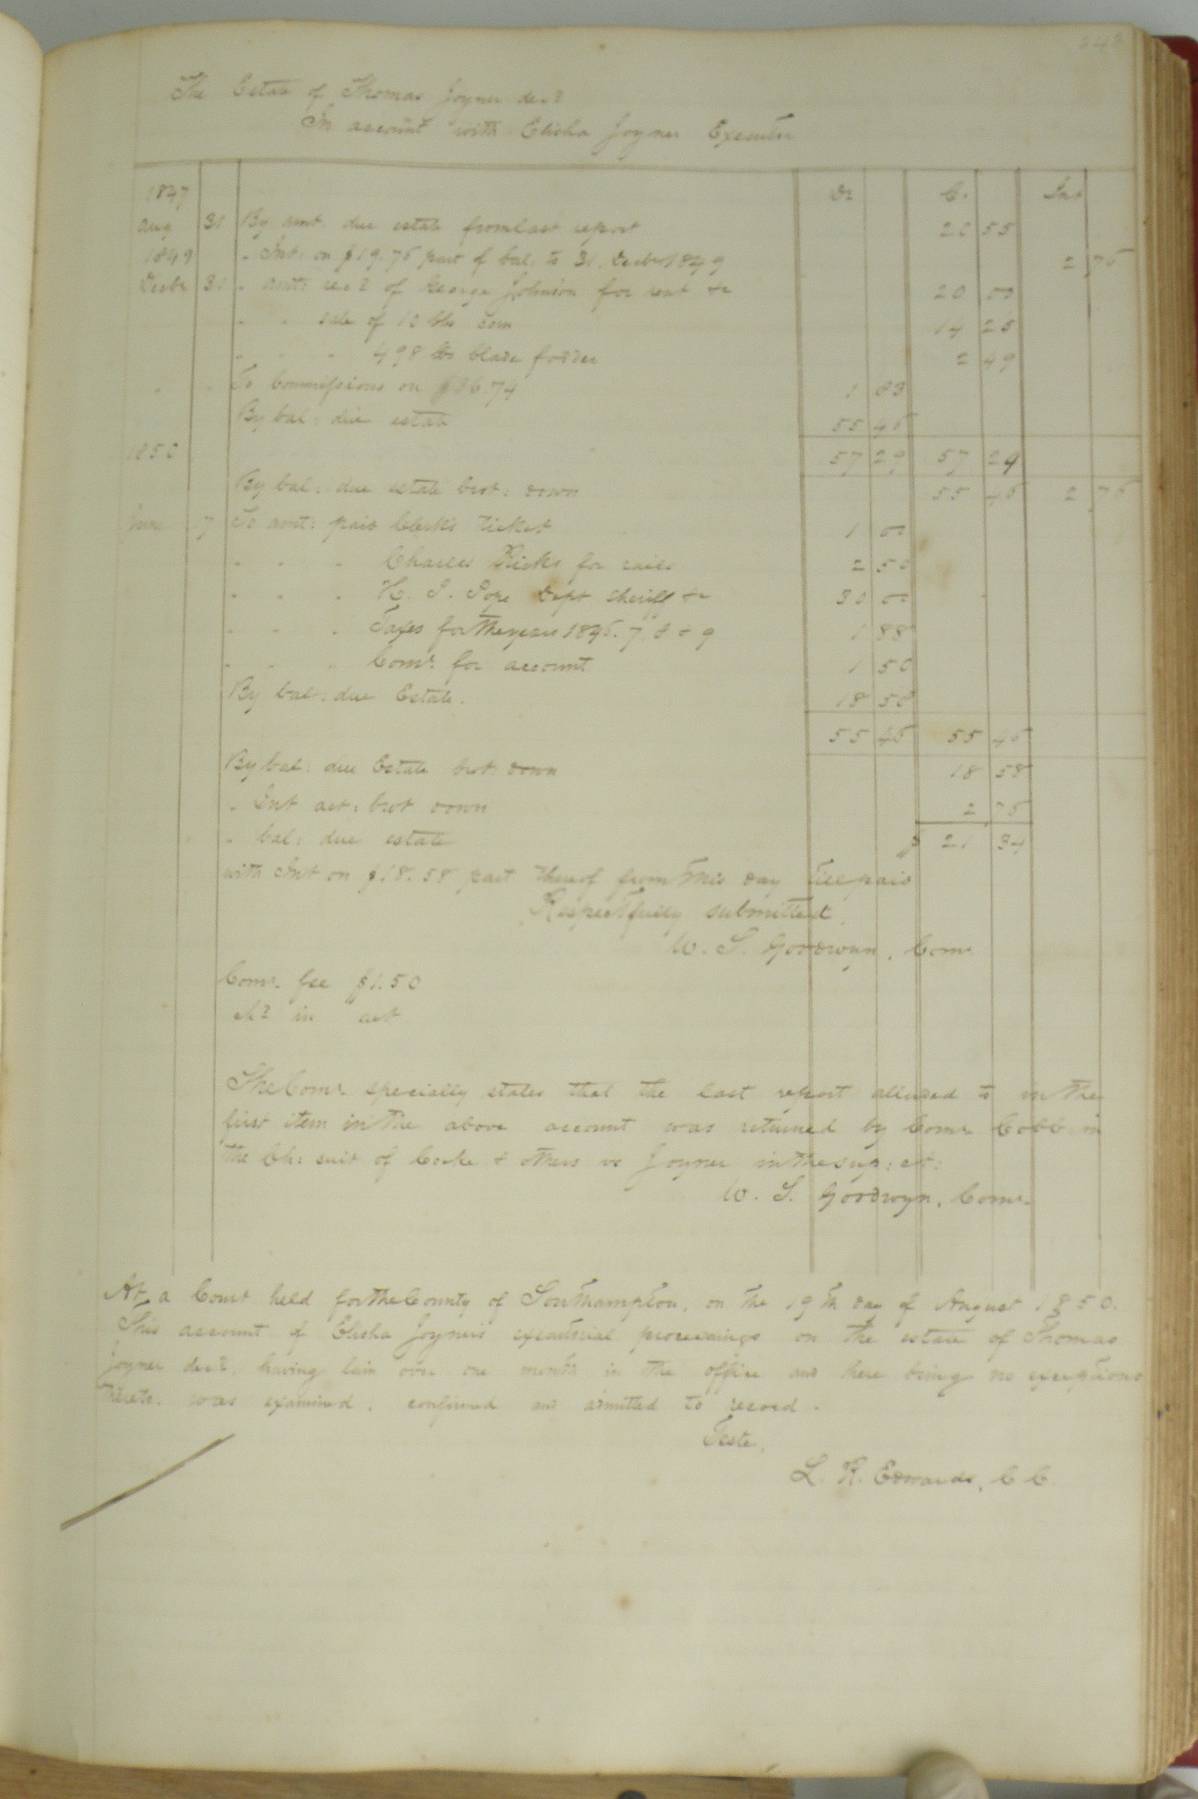 The Estate of Thomas Joyner decd
In account with Elisha Joyner Executor
1847 Dr Cr Int
Aug 31 By amt due estate from last report 20 55
1849 " Int: on $19.76 part of bal: to 31 Decbr 1849 2 76
Decbr 31 " amt: recd of George Johnson for rent &c 20 00
" " sale of 12 bbs corn 14 25
" " " 498 lbs blade fodder 2 49
To Commissions on $36.74 1 83
By bal: due estate 55 46
1850 57 29 57 29
By bal: due estate brot: down 55 46 2 76
June 7 To amt: paid Clerk's ticket 1 00
" " " Charles Ricks for rails 2 50
" " " H. J. Pope Dept Sheriff &c 30 00
" " " Taxes for the years 1846. 7. 8 & 9 1 88
" " " Comr. for account 1 50
By bal: due Estate. 18 58
55 46 55 46
By bal: due Estate brot: down 18 58
" Int act: brot down 2 76
" bal: due estate $ 21 34
with Int on $18.58 part thereof from this day till paid
Respectfully submitted.
W. S. Goodwyn, Comr
Comr. fee $1.50
chd in act
The Comr. specially states that the last report alluded to in the
first item in the above account was returned by Comr Cobb in
the Ch: suit of Cocke & others vs Joyner in the sup: ct:
W. S. Goodwyn, Comr.
At a Court held for the County of Southampton, on the 19th day of August 1850.
This account of Elisha Joyner's executorial proceedings on the estate of Thomas
Joyner decd, having lain over one month in the office and there being no exceptions
thereto, was examined, confirmed and admitted to record.
Teste,
L. R. Edwards, C C